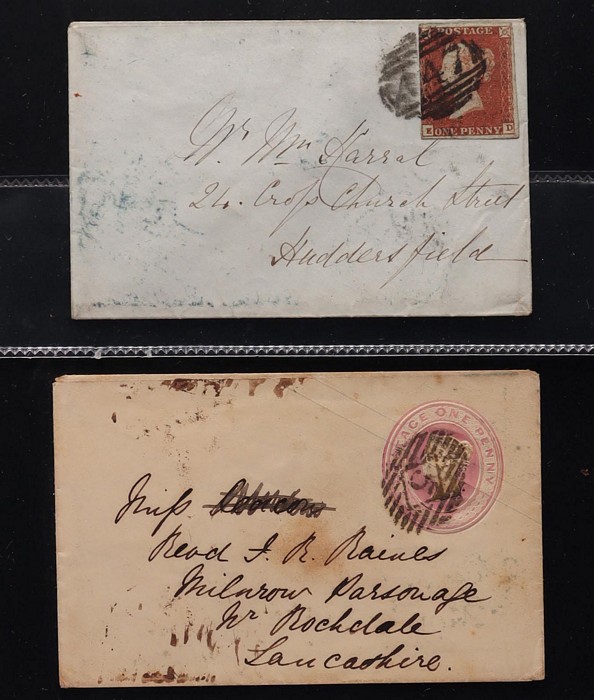 POSTAGE
447
E ONE PENNY D
Mr. Wm Harral
24. Cross Church Street
Huddersfield
ACE ONE PENNY
Miss
Revd F. R. Raines
Milnrow Parsonage
Nr Rochdale
Lancashire.